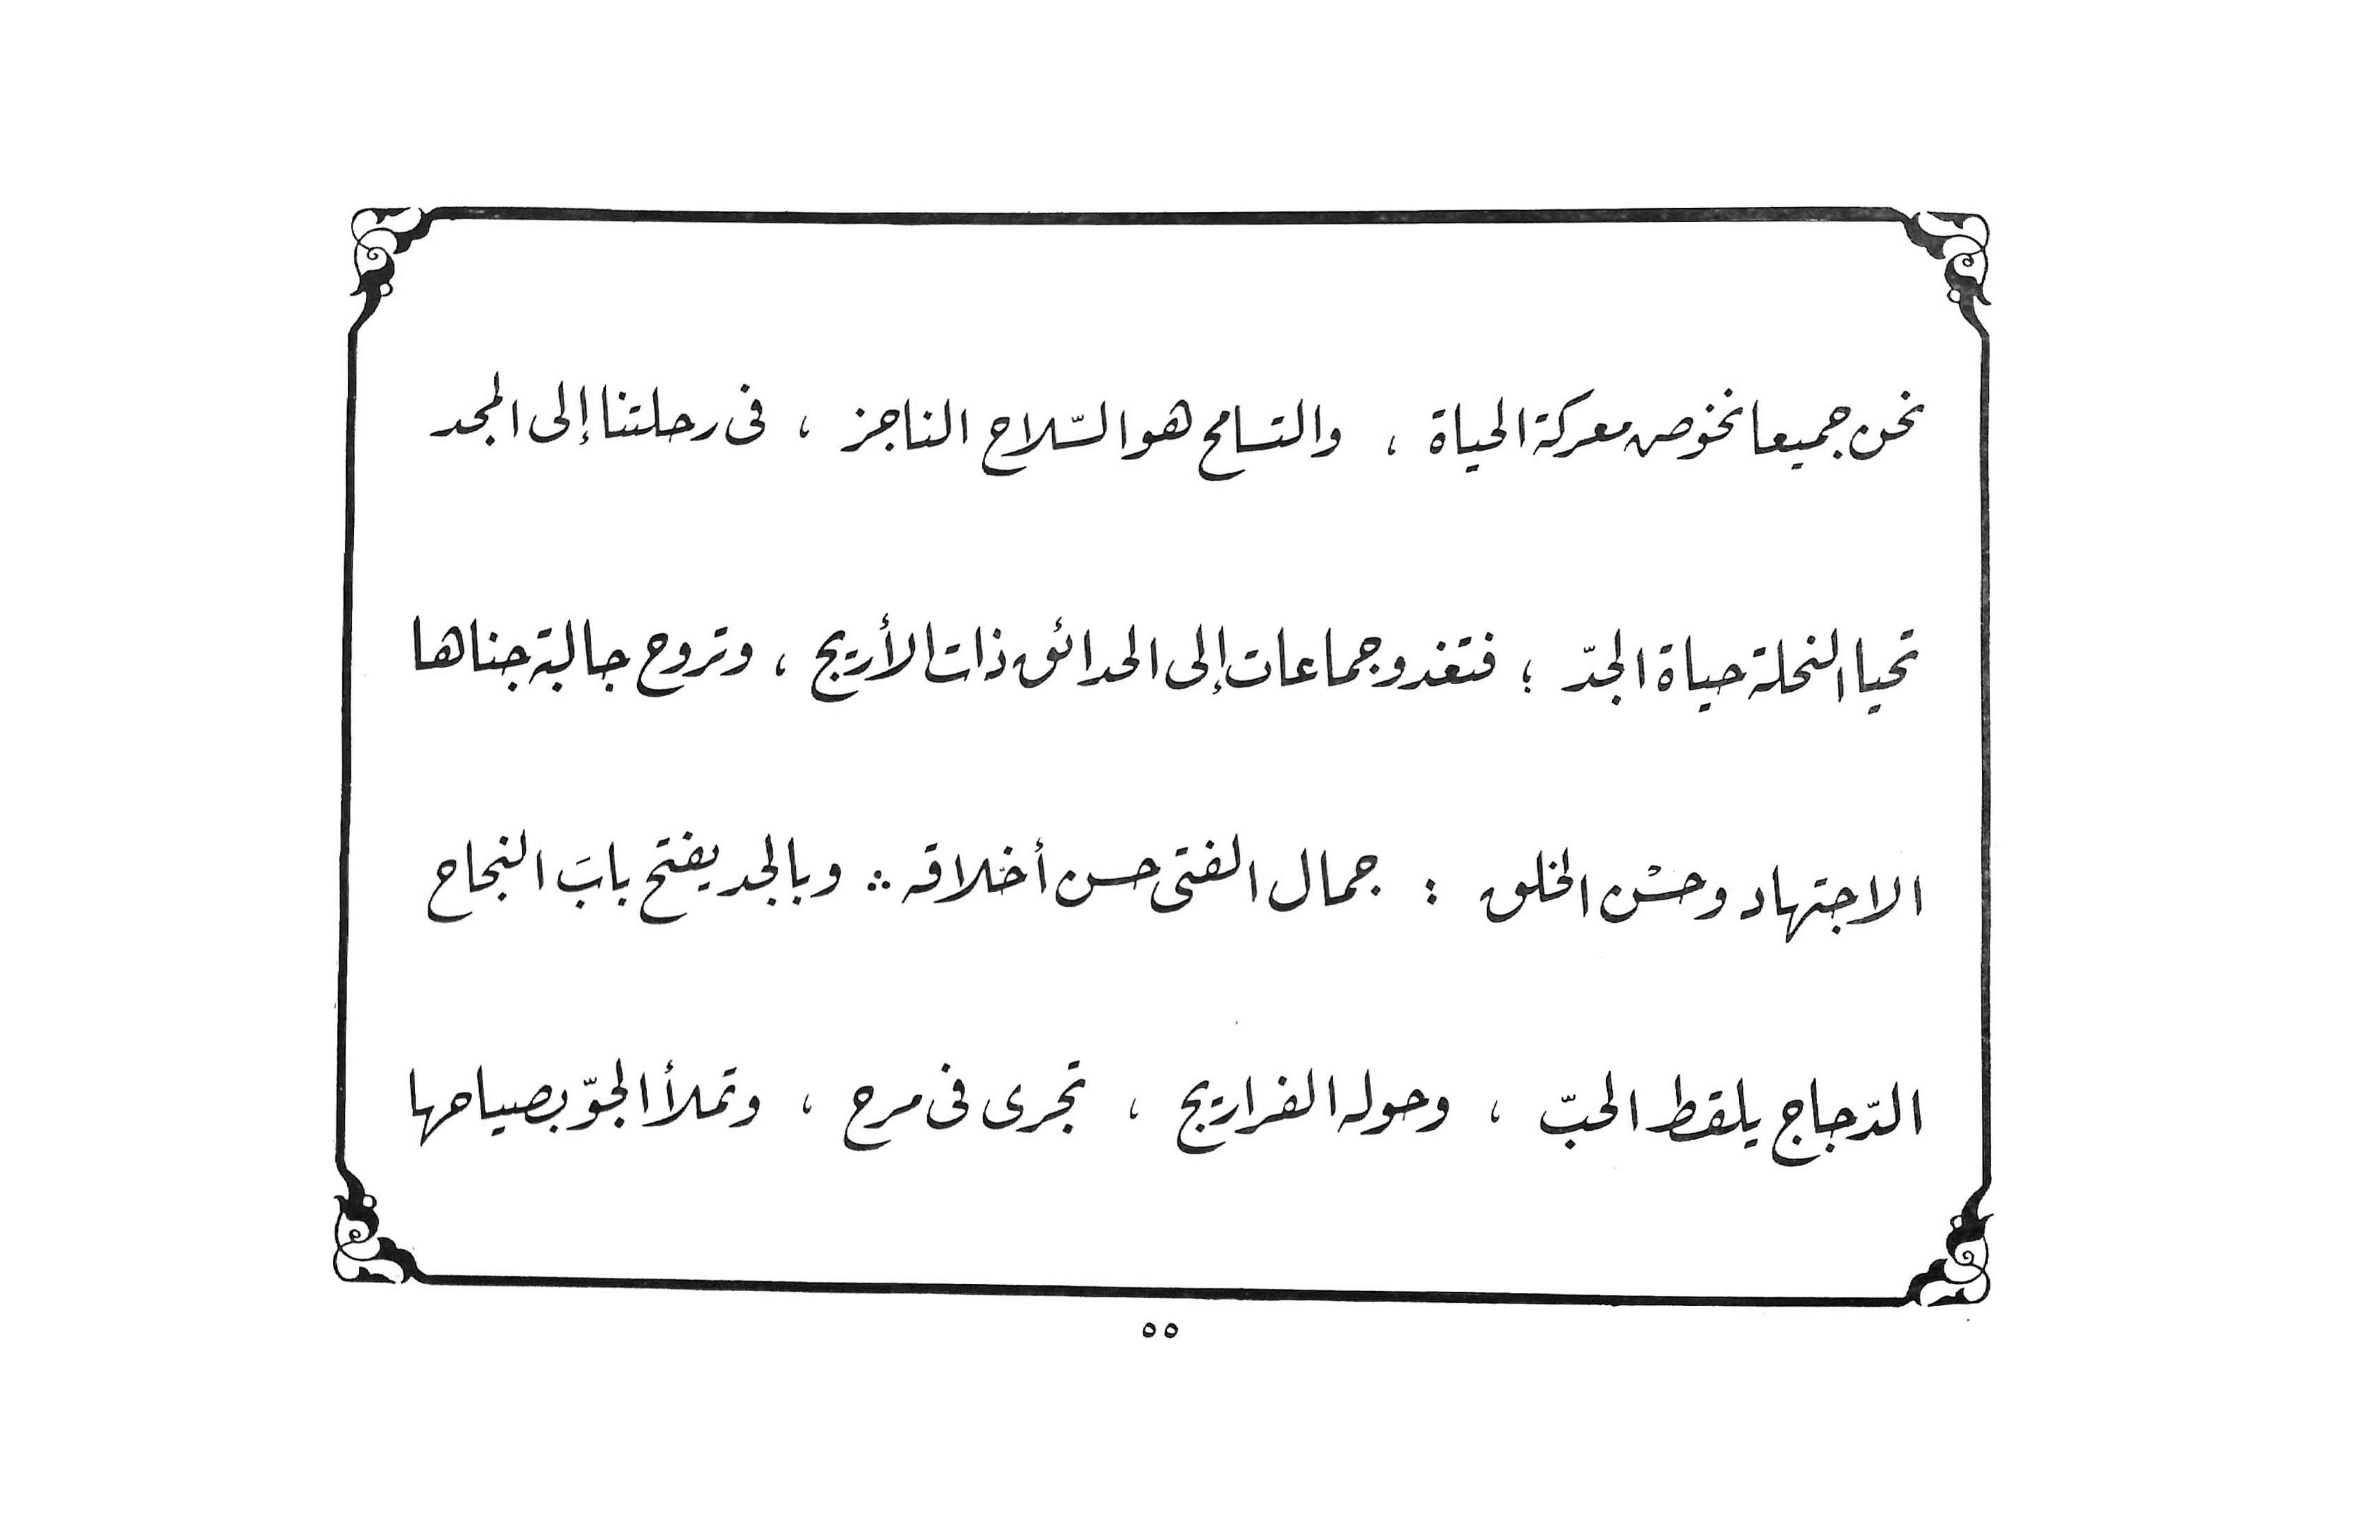 نحن جميعا نخوض معركة الحياة ، والتسامح هو السّلاح الناجز ، فى رحلتنا إلى المجد
تحيا النحلة حياة الجدّ ؛ فتغدو جماعات إلى الحدائق ذات الأريج ، وتروح جالبة جناها
الاجتهاد وحسْن الخلق : جمال الفتى حسن أخلاقه ∴ وبالجد يفتح بابَ النجاح
الدّجاج يلقط الحبّ ، وحوله الفراريج ، تجرى فى مرح ، وتملأ الجوّ بصياحها
٥٥